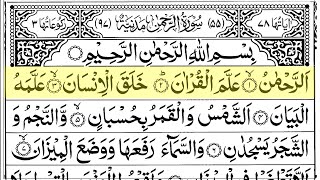 اٰیاتها ٧٨ (٥٥) سُوْرَةُ الرَّحْمٰنِ مَدَنِیَّةٌ (٩٧) رکوعاتها ٣
بِسْمِ اللّٰهِ الرَّحْمٰنِ الرَّحِیْمِ
اَلرَّحْمٰنُ ۙ﴿١﴾ عَلَّمَ الْقُرْاٰنَ ؕ﴿٢﴾ خَلَقَ الْاِنْسَانَ ۙ﴿٣﴾ عَلَّمَهُ
الْبَیَانَ ﴿٤﴾ اَلشَّمْسُ وَ الْقَمَرُ بِحُسْبَانٍ ۪﴿٥﴾ وَّ النَّجْمُ وَ
الشَّجَرُ یَسْجُدٰنِ ﴿٦﴾ وَ السَّمَآءَ رَفَعَهَا وَ وَضَعَ الْمِیْزَانَ ۙ﴿٧﴾